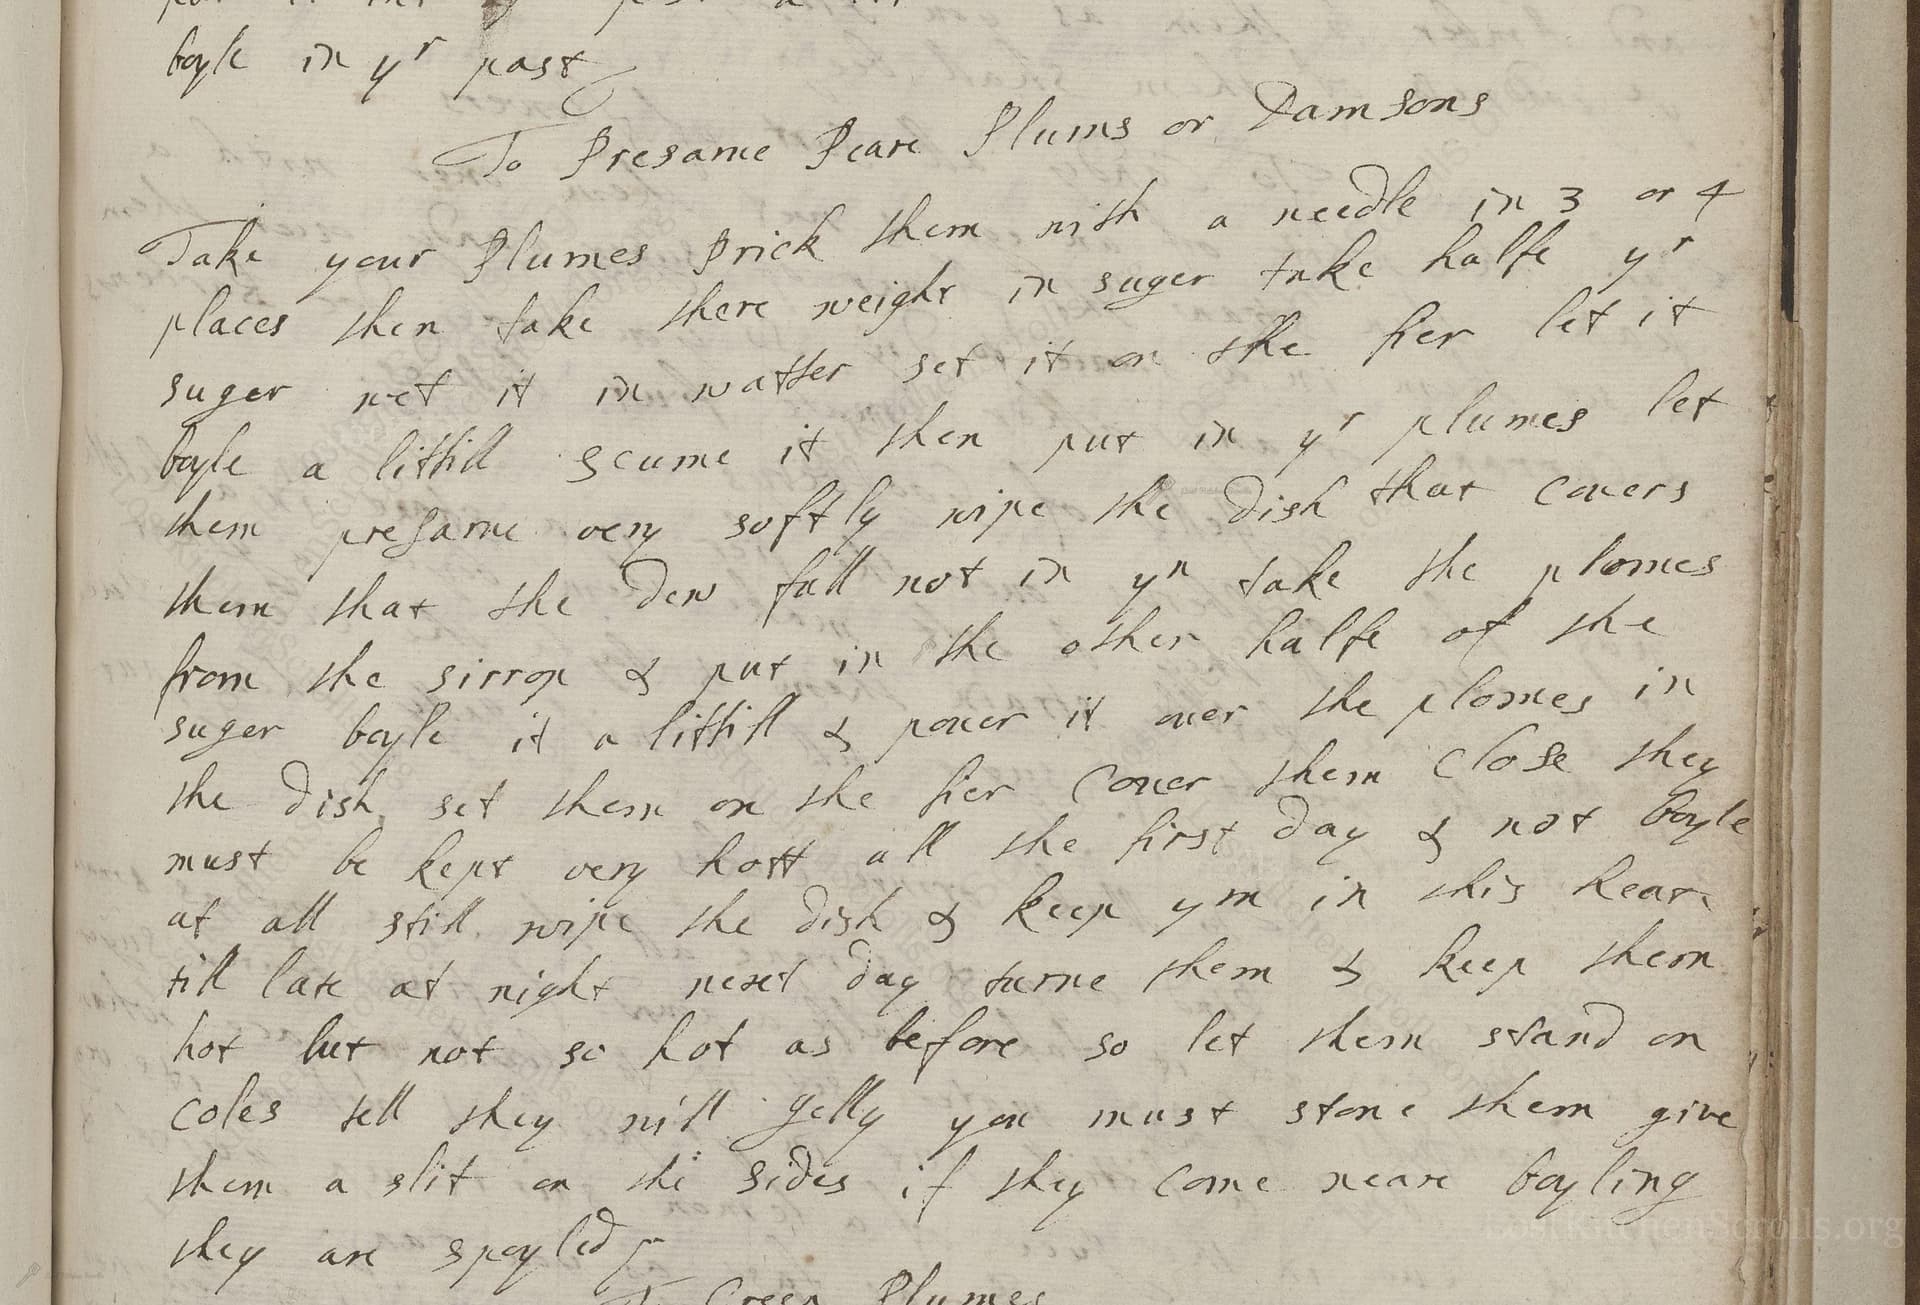 boyle in yr past
To Presarue Peare Plums or Damsons
Take your Plumes Prick them with a needle in 3 or 4
places then take there weight in suger take halfe yr
suger wet it in watter set it on the fier let it
boyle a littill scume it then put in yr plumes let
them presarue very softly wipe the dish that couers
them that the dew fall not in yn take the plomes
from the sirrop & put in the other halfe of the
suger boyle it a littill & pouer it ouer the plomes in
the dish set them on the fier Couer them Close they
must be kept very hott all the first day & not boyle
at all still wipe the dish & keep ym in this heate
till late at night next day turne them & keep them
hot but not so hot as before so let them stand on
Coles tell they will Gelly you must stone them give
them a slit on the sides if they Come neare boyling
they are spoyled
To Green Plumes
LostKitchenScrolls.org